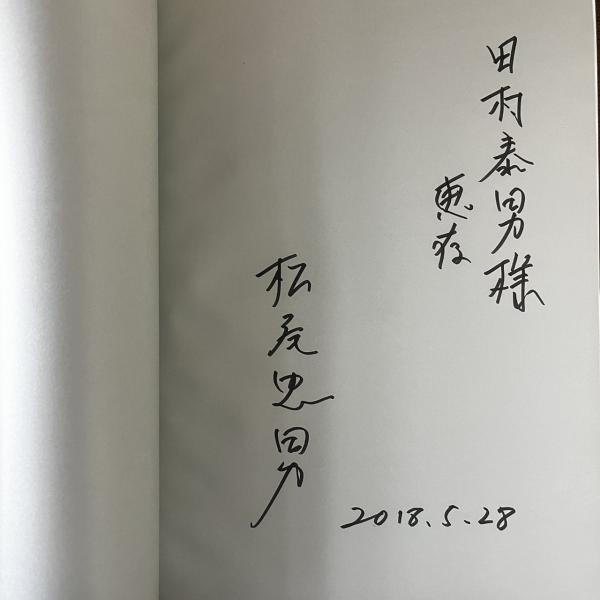 田村泰男様
恵存
松尾忠男
2018.5.28